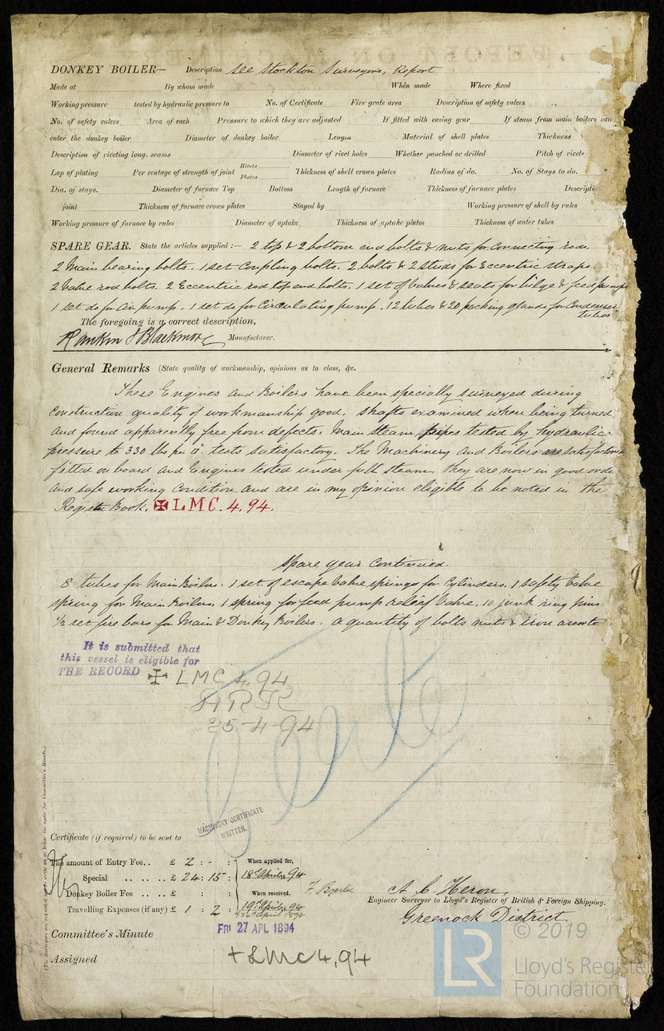 DONKEY BOILER— Description see Stockton Surveyors, Report
Made at By whom made When made Where fixed
Working pressure tested by hydraulic pressure to No. of Certificate Fire grate area Description of safety valves
No. of safety valves Area of each Pressure to which they are adjusted If fitted with easing gear If steam from main boilers can
enter the donkey boiler Diameter of donkey boiler Length Material of shell plates Thickness
Description of riveting long. seams Diameter of rivet holes Whether punched or drilled Pitch of rivets
Lap of plating Per centage of strength of joint Rivets Plates Thickness of shell crown plates Radius of do. No. of Stays to do.
Dia. of stays. Diameter of furnace Top Bottom Length of furnace Thickness of furnace plates Descripti
joint Thickness of furnace crown plates Stayed by Working pressure of shell by rules
Working pressure of furnace by rules Diameter of uptake Thickness of uptake plates Thickness of water tubes
SPARE GEAR. State the articles supplied:— 2 top & 2 bottom end bolts & nuts for Connecting rods
2 Main bearing bolts. 1 set Coupling bolts. 2 bolts & 2 studs for Eccentric straps.
2 Valve rod bolts. 2 Eccentric rod top end bolts. 1 set of valves & seats for bilge & feed pump
1 set do for Air pump. 1 set do for Circulating pump. 12 tubes & 20 packing glands for Condenser
tubes
The foregoing is a correct description,
Rankin & Blackmore Manufacturer.
General Remarks (State quality of workmanship, opinions as to class, &c.
These Engines and Boilers have been specially surveyed during
construction quality of workmanship good, shafts examined when being turned
and found apparently free from defects. Main steam pipes tested by hydraulic
pressure to 330 lbs per □" tests satisfactory. The Machinery and Boilers are satisfactorily
fitted on board and Engines tested under full steam, they are now in good order
and safe working condition and are in my opinion eligible to be noted in the
Register Book. ✠ LMC. 4. 94.
Spare gear continued.
8 tubes for Main Boilers. 1 set of escape valve springs for Cylinders. 1 Safety Valve
spring for Main Boilers. 1 spring for feed pump relief valve. 10 junk ring pins
½ set fire bars for Main & Donkey Boilers. a quantity of bolts nuts & iron assorted
It is submitted that
this vessel is eligible for
THE RECORD ✠ LMC 4.94
25-4-94
MACHINERY CERTIFICATE
WRITTEN.
Certificate (if required) to be sent to
The amount of Entry Fee.. £ 2 : - : When applied for,
Special £ 24 : 15 : 18th April 94
Donkey Boiler Fee £ : : When received,
Travelling Expenses (if any) £ 1 : 2 : 19th April 94
A C Heron,
Engineer Surveyor to Lloyd's Register of British & Foreign Shipping.
Greenock District
Committee's Minute FRI 27 APL 1894
Assigned + LMC 4,94
LR © 2019
Lloyd's Register
Foundation